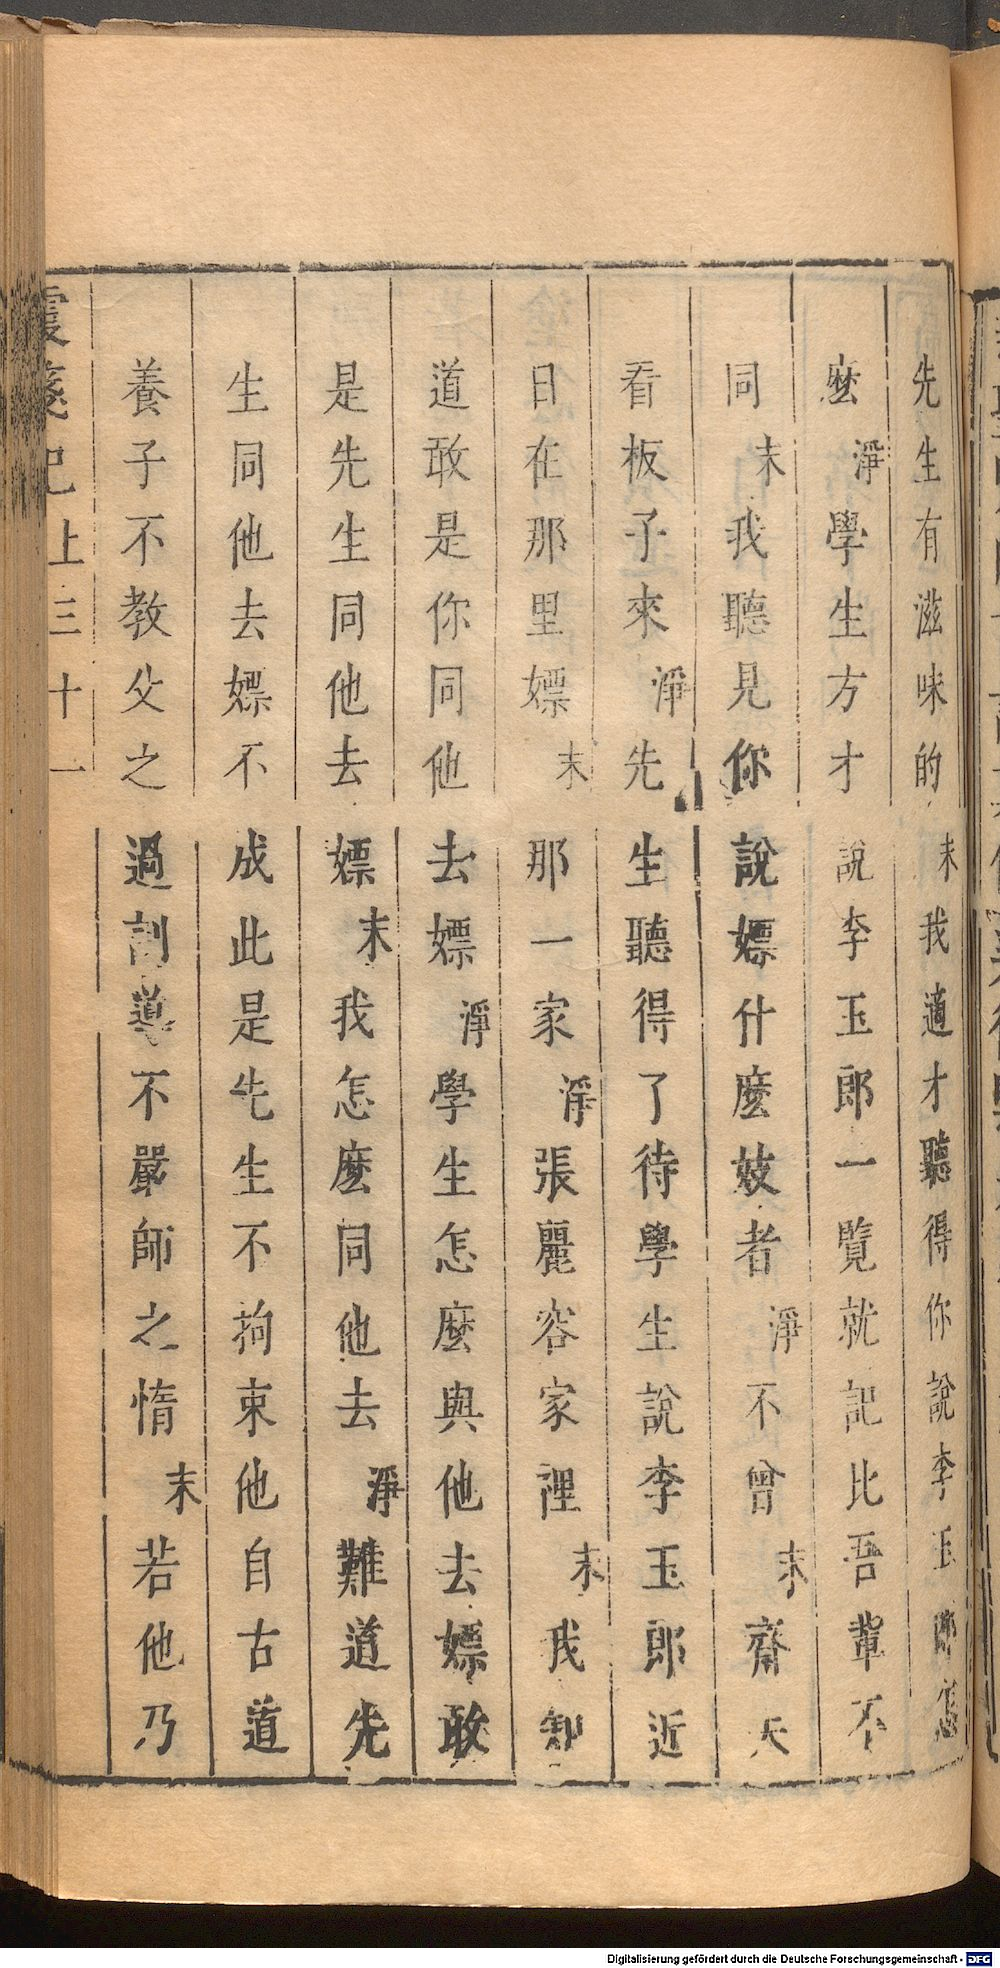 先生有滋味的末我適才聽得你說李玉郎怎
麽淨學生方才說李玉郎一覽就記比吾輩不
同末我聽見你說嫖什麽妓者淨不曾末齋夫
看板子來淨先生聽得了待學生說李玉郎近
日在那里嫖末那一家淨張麗容家裡末我知
道敢是你同他去嫖淨學生怎麽與他去嫖敢
是先生同他去嫖末我怎麽同他去淨難道先
生同他去嫖不成此是先生不拘束他自古道
養子不教父之過訓導不嚴師之惰末若他乃
霞箋記上三十一
Digitalisierung gefördert durch die Deutsche Forschungsgemeinschaft - DFG